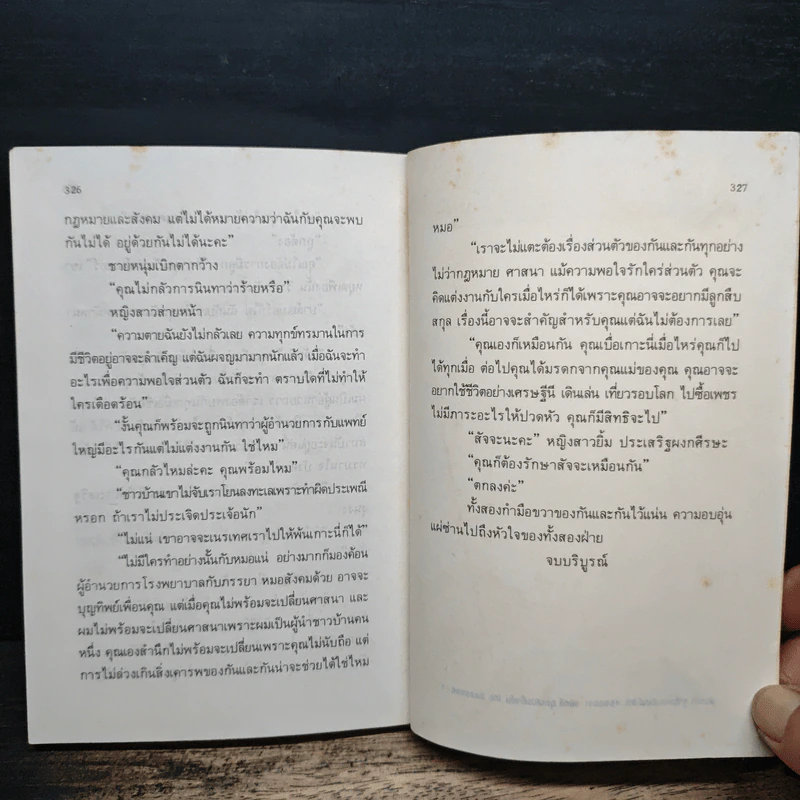 326
กฎหมายและสังคม แต่ไม่ได้หมายความว่าฉันกับคุณจะพบ
กันไม่ได้ อยู่ด้วยกันไม่ได้นะคะ”
ชายหนุ่มเบิกตากว้าง
“คุณไม่กลัวการนินทาว่าร้ายหรือ”
หญิงสาวส่ายหน้า
“ความตายฉันยังไม่กลัวเลย ความทุกข์ทรมานในการ
มีชีวิตอยู่อาจจะสำเค็ญ แต่ฉันผจญมามากนักแล้ว เมื่อฉันจะทำ
อะไรเพื่อความพอใจส่วนตัว ฉันก็จะทำ ตราบใดที่ไม่ทำให้
ใครเดือดร้อน”
“งั้นคุณก็พร้อมจะถูกนินทาว่าผู้อำนวยการกับแพทย์
ใหญ่มีอะไรกันแต่ไม่แต่งงานกัน ใช่ไหม”
“คุณกลัวไหมล่ะคะ คุณพร้อมไหม”
“ชาวบ้านเขาไม่จับเราโยนลงทะเลเพราะทำผิดประเพณี
หรอก ถ้าเราไม่ประเจิดประเจ้อนัก”
“ไม่แน่ เขาอาจจะเนรเทศเราไปให้พ้นเกาะนี้ก็ได้”
“ไม่มีใครทำอย่างนั้นกับหมอแน่ อย่างมากก็มองค้อน
ผู้อำนวยการโรงพยาบาลกับภรรยา หมอสังคมด้วย อาจจะ
บุญทิพย์เพื่อนคุณ แต่เมื่อคุณไม่พร้อมจะเปลี่ยนศาสนา และ
ผมไม่พร้อมจะเปลี่ยนศาสนาเพราะผมเป็นผู้นำชาวบ้านคน
หนึ่ง คุณเองสำนึกไม่พร้อมจะเปลี่ยนเพราะคุณไม่นับถือ แต่
การไม่ล่วงเกินสิ่งเคารพของกันและกันน่าจะช่วยได้ใช่ไหม
327
หมอ”
“เราจะไม่แตะต้องเรื่องส่วนตัวของกันและกันทุกอย่าง
ไม่ว่ากฎหมาย ศาสนา แม้ความพอใจรักใคร่ส่วนตัว คุณจะ
คิดแต่งงานกับใครเมื่อไหร่ก็ได้เพราะคุณอาจจะอยากมีลูกสืบ
สกุล เรื่องนี้อาจจะสำคัญสำหรับคุณแต่ฉันไม่ต้องการเลย”
“คุณเองก็เหมือนกัน คุณเบื่อเกาะนี้เมื่อไหร่คุณก็ไป
ได้ทุกเมื่อ ต่อไปคุณได้มรดกจากแม่ของคุณ คุณอาจจะ
อยากใช้ชีวิตอย่างเศรษฐีนี เดินเล่น เที่ยวรอบโลก ไปซื้อเพชร
ไม่มีภาระอะไรให้ปวดหัว คุณก็มีสิทธิจะไป”
“สัจจะนะคะ” หญิงสาวยิ้ม ประเสริฐผงกศีรษะ
“คุณก็ต้องรักษาสัจจะเหมือนกัน”
“ตกลงค่ะ”
ทั้งสองกำมือขวาของกันและกันไว้แน่น ความอบอุ่น
แผ่ซ่านไปถึงหัวใจของทั้งสองฝ่าย
จบบริบูรณ์